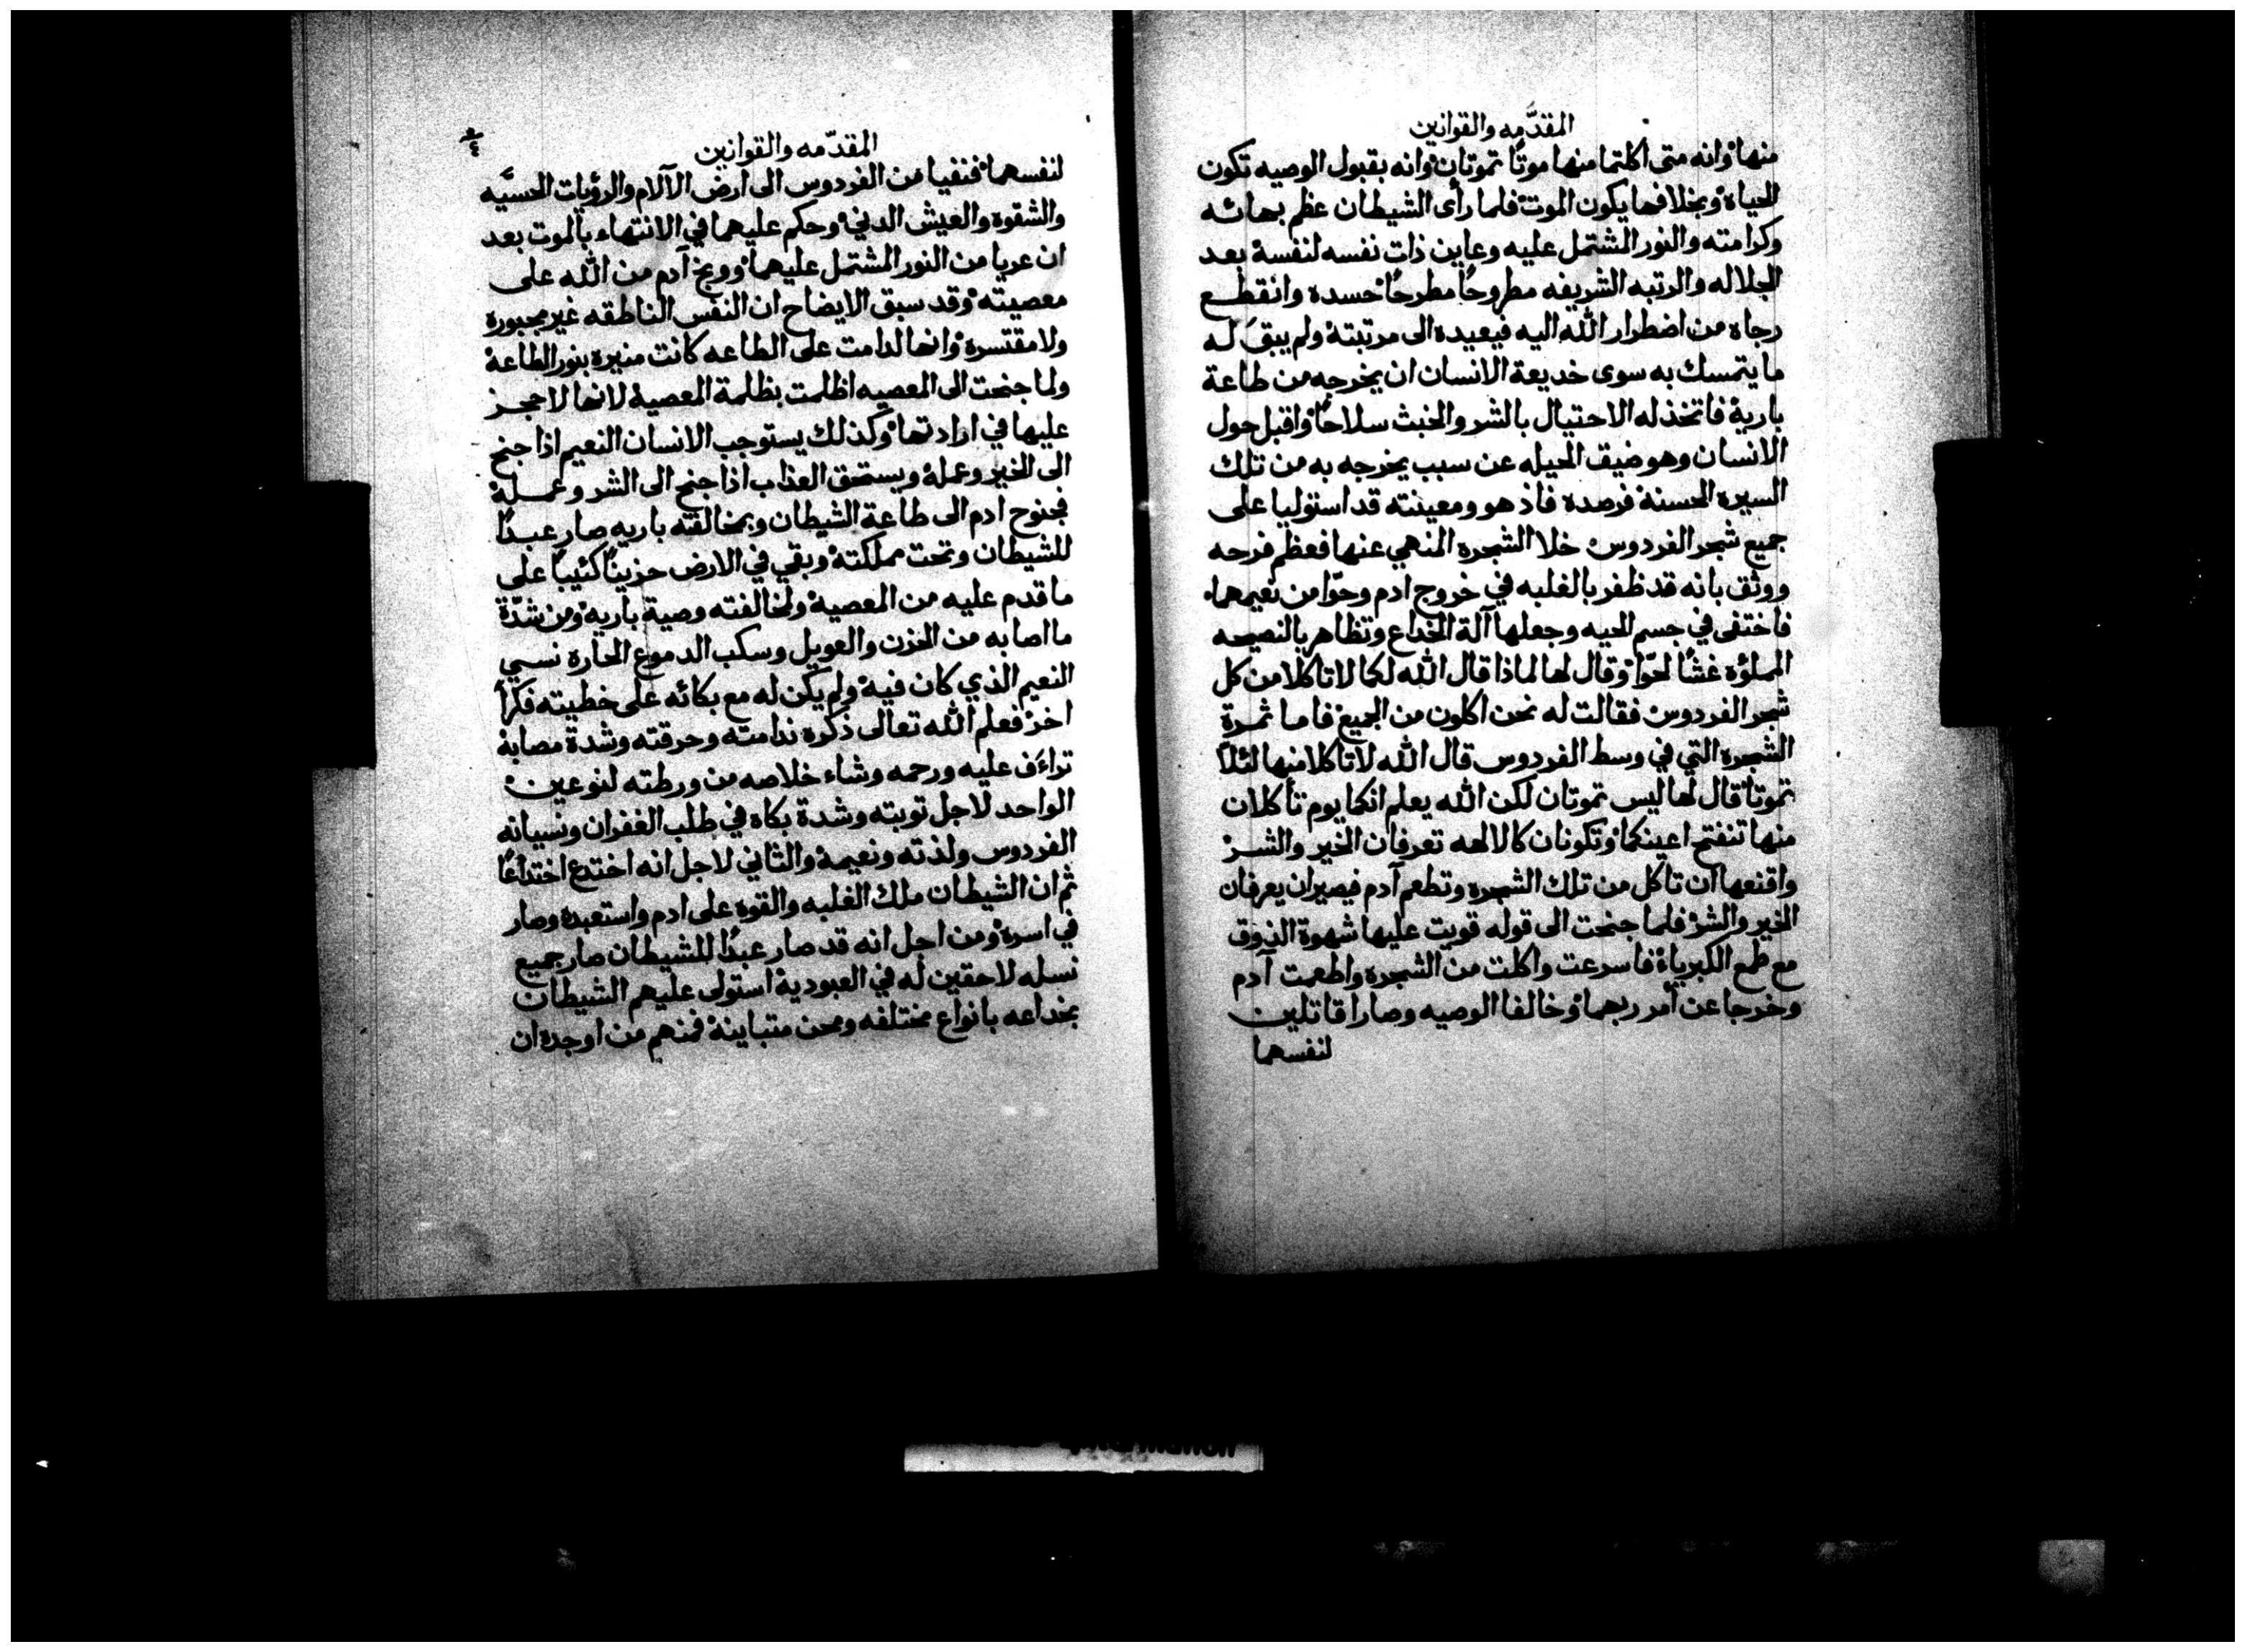 المقدّمه والقوانين
منها وانه متى اكلتما منها موتًا تموتان وانه بقبول الوصيه تكون
الحياة وبخلافها يكون الموت فلما رأى الشيطان عظم بهائه
وكرامته والنور المشتمل عليه وعاين ذات نفسه لنفسه بعد
الجلاله والرتبه الشريفه مطروحًا مطرحًا حسده وانقطع
رجاه من اضطرار الله اليه فيعيده الى مرتبته ولم يبقَ له
ما يتمسك به سوى خديعة الانسان ان يخرجه من طاعة
باريه فاتخذ له الاحتيال بالشر والخبث سلاحًا واقبل حول
الانسان وهو ضيق الحيله عن سبب يخرجه به من تلك
السيره الحسنه فرصده فاذ هو ومعينته قد استوليا على
جميع شجر الفردوس خلا الشجره المنهي عنها فعظم فرحه
ووثق بانه قد ظفر بالغلبه في خروج ادم وحوّا من نعيمهما
فاختفى في جسم الحيه وجعلها آلة الخداع وتظاهر بالنصيحه
المملؤه غشًا لحوّا وقال لها لماذا قال الله لكما لا تاكلا من كل
شجر الفردوس فقالت له نحن اكلون من الجميع فاما ثمرة
الشجره التي في وسط الفردوس قال الله لا تاكلا منها لئلا
تموتا قال لها ليس تموتان لكن الله يعلم انكما يوم تأكلان
منها تنفتح اعينكما وتكونان كالالهه تعرفان الخير والشر
واقنعها ان تاكل من تلك الشجره وتطعم آدم فيصيران يعرفان
الخير والشر فلما جنحت الى قوله قويت عليها شهوة الذوق
مع طمع الكبرياء فاسرعت واكلت من الشجره واطعمت آدم
وخرجا عن أمر ربهما وخالفا الوصيه وصارا قاتلين
لنفسهما
المقدّمه والقوانين
لنفسهما فنفيا من الفردوس الى ارض الآلام والرؤيات الحسيّه
والشقوه والعيش الدني وحكم عليهما في الانتهاء بالموت بعد
ان عريا من النور المشتمل عليهما ووبخ آدم من الله على
معصيته وقد سبق الايضاح ان النفس الناطقه غير مجبوره
ولا مقتسره وانها لدامت على الطاعه كانت منيره بنور الطاعه
ولما جنحت الى المعصيه اظلمت بظلمة المعصيه لانها لا حجز
عليها في ارادتها وكذلك يستوجب الانسان النعيم اذا جنح
الى الخير وعمله ويستحق العذاب اذا جنح الى الشر وعمله
فجنوح ادم الى طاعة الشيطان وبمخالفته باريه صار عبدًا
للشيطان وتحت مملكته وبقي في الارض حزينًا كئيبًا على
ما قدم عليه من المعصيه ولمخالفته وصية باريه ومن شدّة
ما اصابه من الحزن والعويل وسكب الدموع الحاره نسي
النعيم الذي كان فيه ولم يكن له مع بكائه على خطيته فكرًا
اخر فعلم الله تعالى ذكره ندامته وحرقته وشدة مصابه
تراءف عليه ورحمه وشاء خلاصه من ورطته لنوعين
الواحد لاجل توبته وشدة بكاه في طلب الغفران ونسيانه
الفردوس ولذته ونعيمه والثاني لاجل انه اختدع اختداعًا
ثم ان الشيطان ملك الغلبه والقوه على ادم واستعبده وصار
في اسره ومن اجل انه قد صار عبدًا للشيطان صار جميع
نسله لاحقين له في العبوديه استولى عليهم الشيطان
بخداعه بانواع مختلفه ومحن متباينه فمنهم من اوجده ان